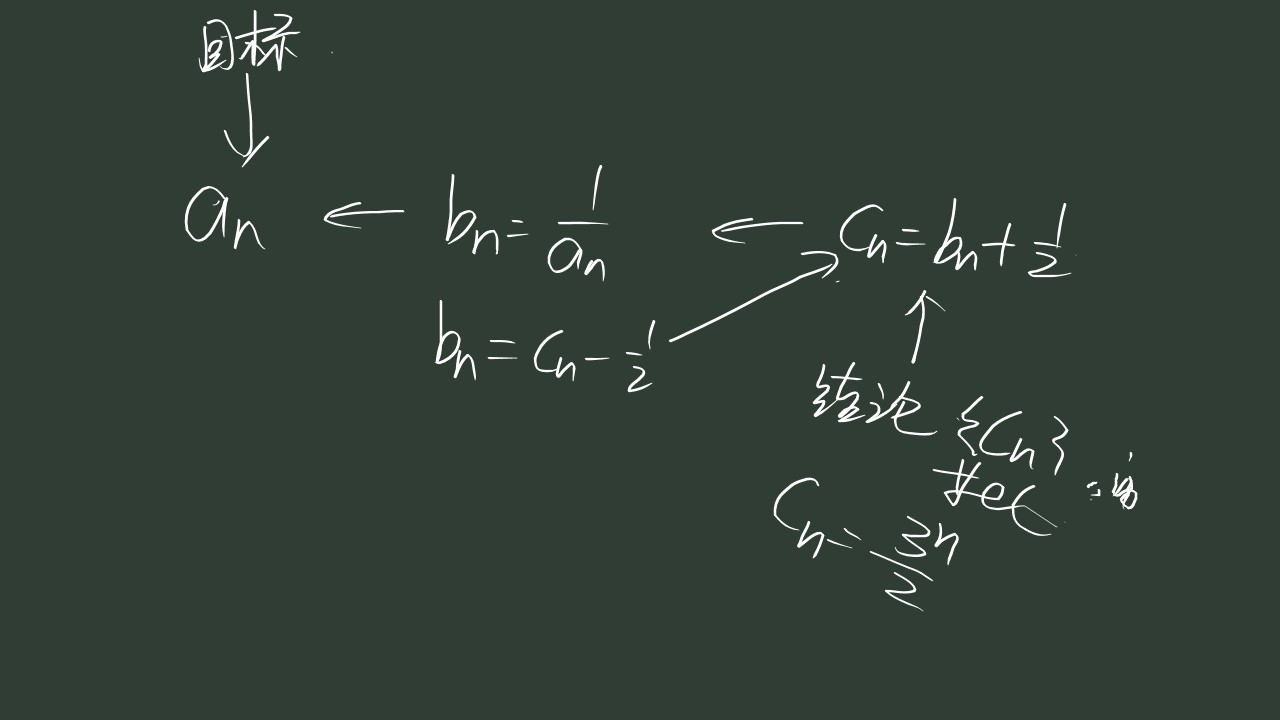 目标
aₙ ← bₙ = 1/aₙ ← Cₙ = bₙ + 1/2
bₙ = Cₙ - 1/2
结论 {Cₙ}
Cₙ = 3ⁿ/2